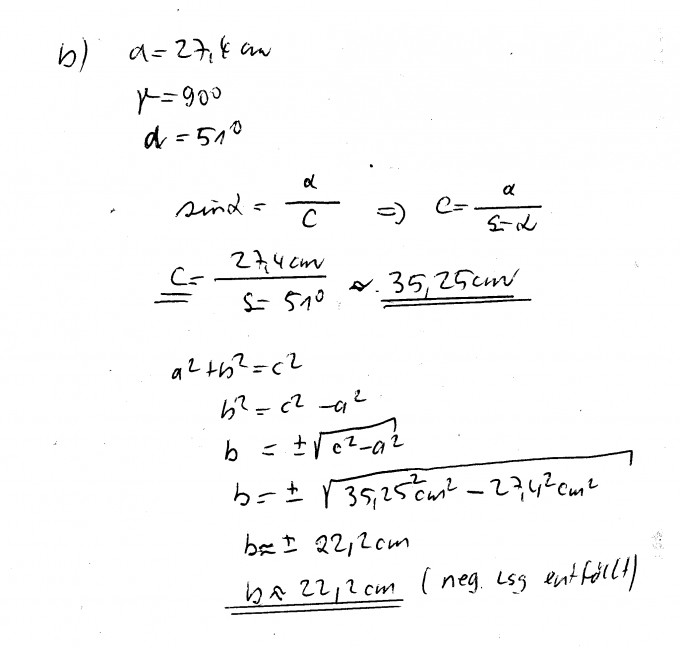 b) a = 27,4 cm
γ = 90°
α = 51°
sin α = a/c ⇒ c = a/sin α
c = 27,4 cm/sin 51° ≈ 35,25 cm
a² + b² = c²
b² = c² - a²
b = ±√(c² - a²)
b = ±√(35,25² cm² - 27,4² cm²)
b ≈ ± 22,2 cm
b ≈ 22,2 cm (neg. Lsg entfällt)